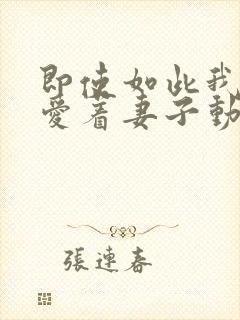 即使如此我
爱着妻子動
張連春